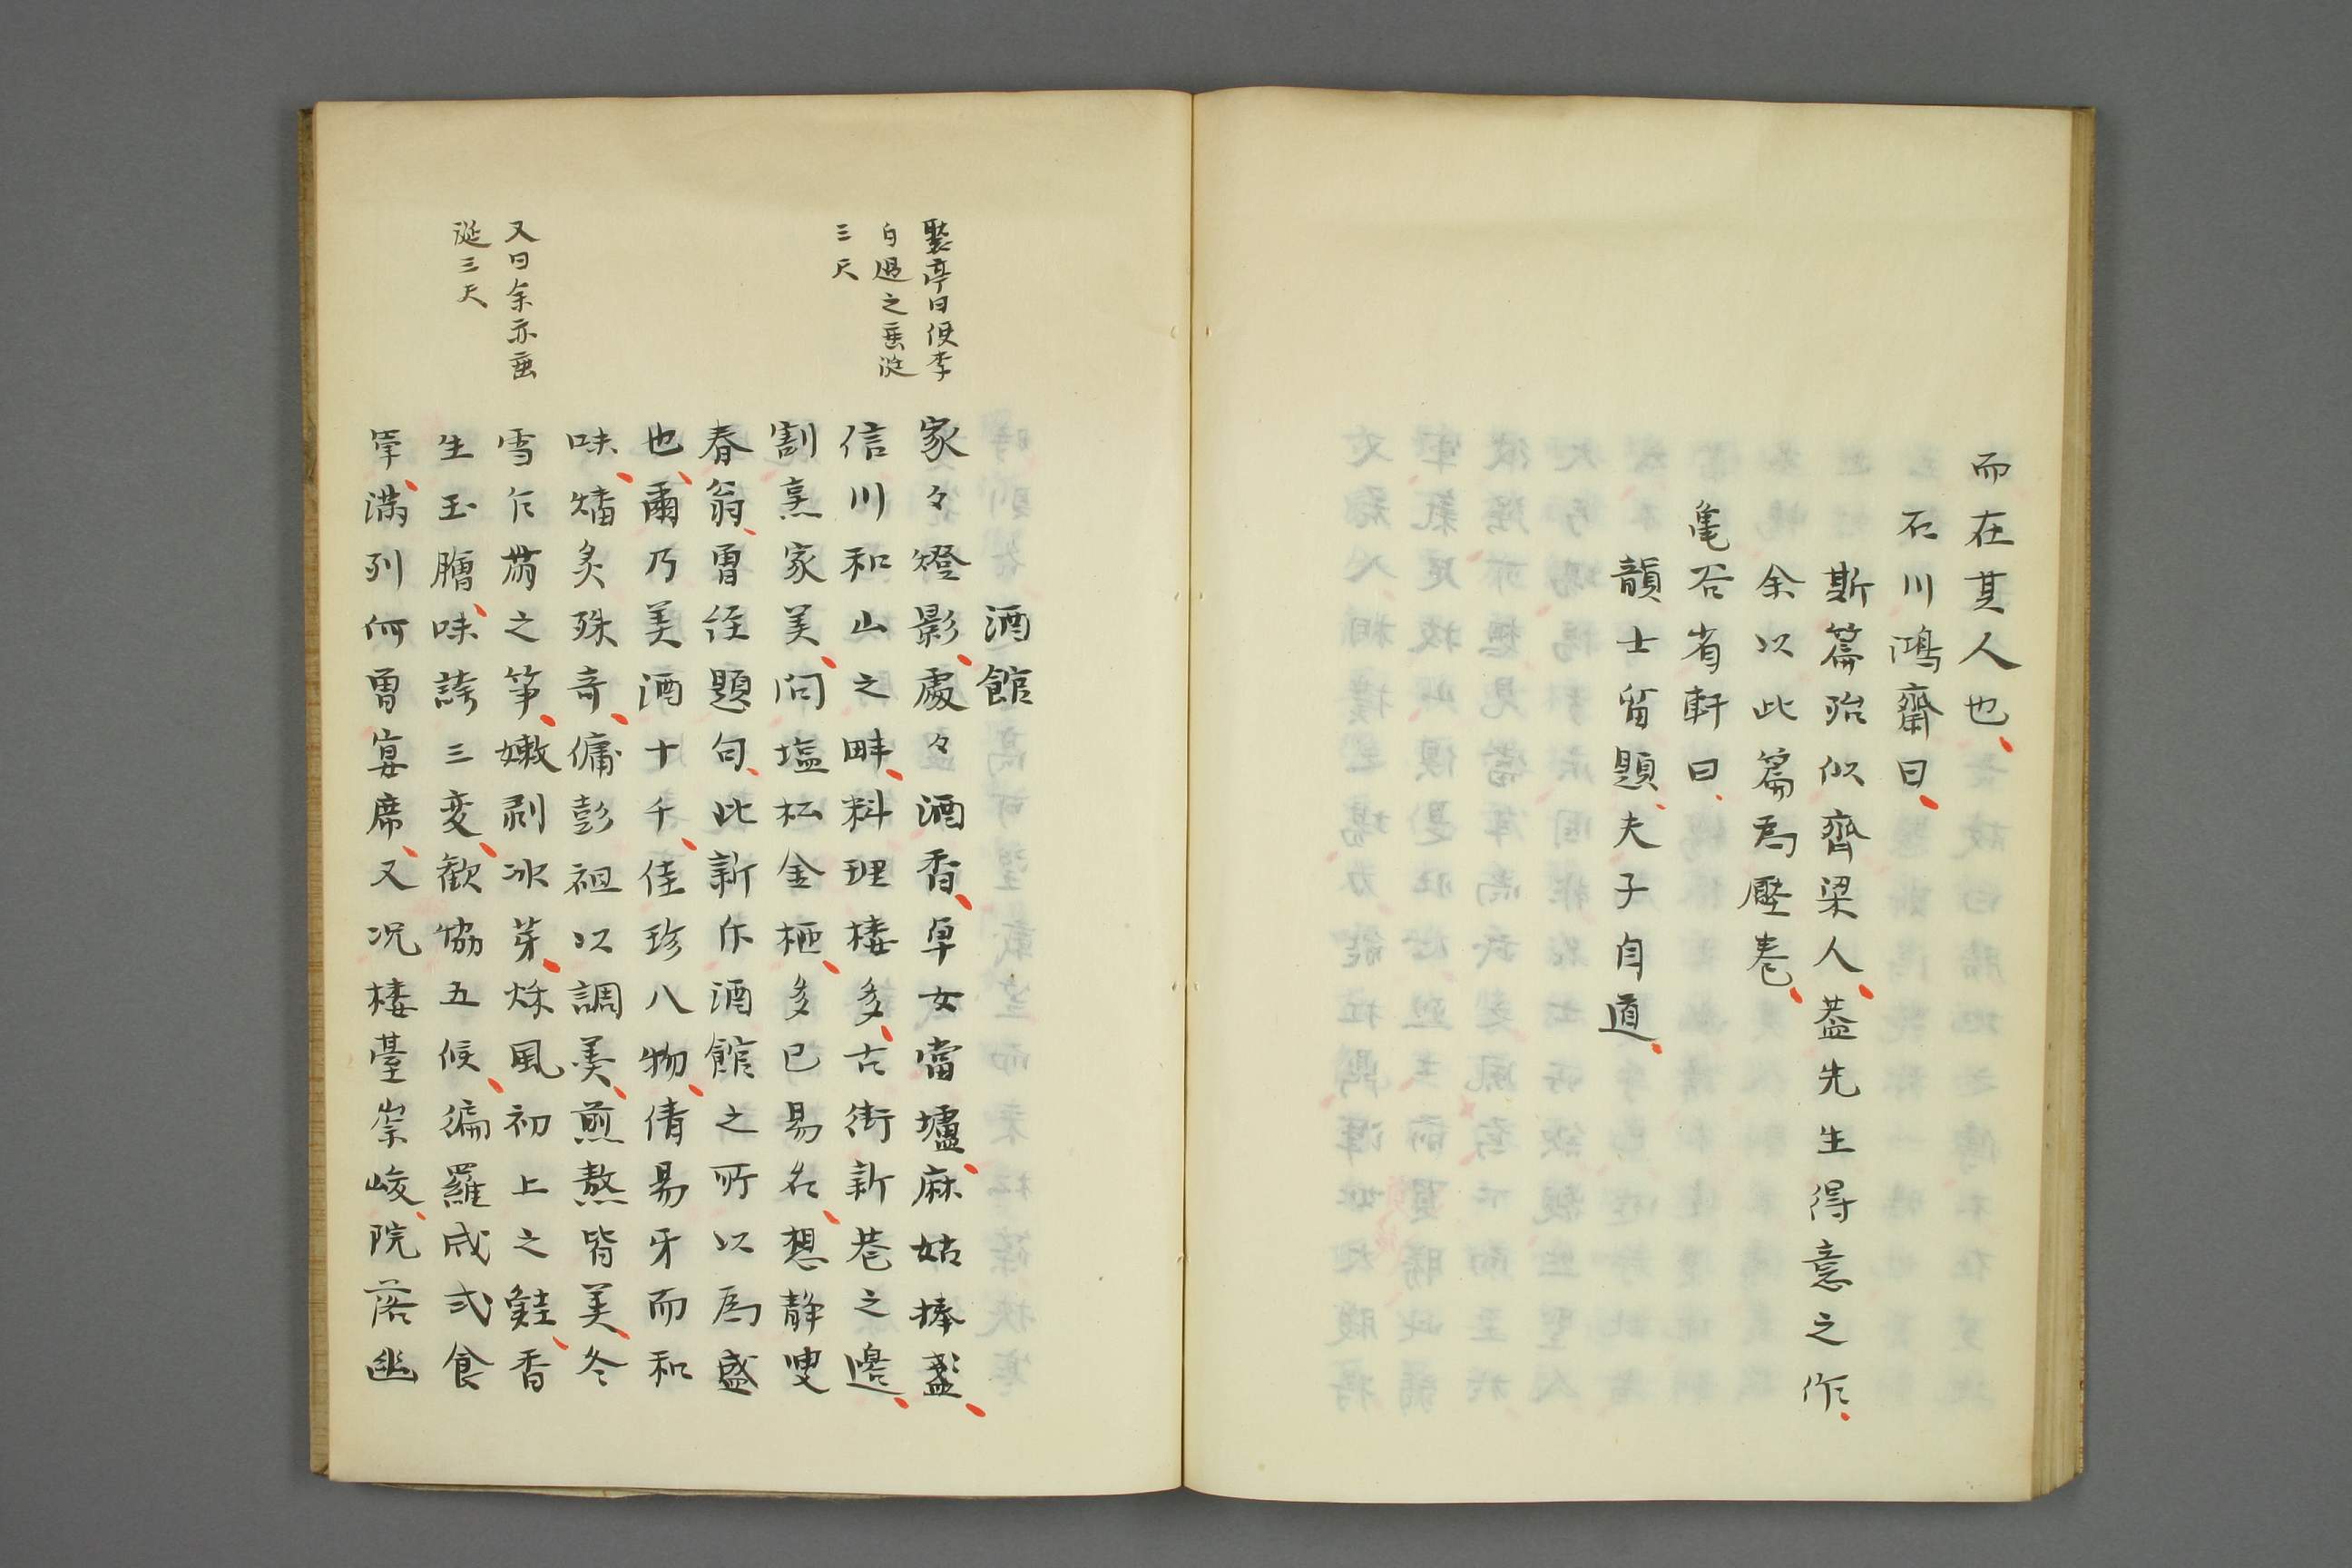 而在其人也、
石川鴻齋曰、
斯篇殆似齊梁人、葢先生得意之作、
余以此篇爲壓巻、
亀谷省軒曰、
韻士留題、夫子自道、
酒館
聚亭曰使李
白過之垂涎
三尺
家々燈影、處々酒香、卓女當壚、麻姑捧盞、
信川和山之畔、料理楼多、古街新巷之邊、
割烹家美、問塩松金栀、多已易名、想静叟
春翁、曽經題句、此新作酒館之所以爲盛
也、爾乃美酒十千、佳珍八物、倩易牙而和
味、燔炙殊奇、傭彭祖以調羹、煎熬皆美、冬
雪乍霽之筝、嫩剥冰芽、秌風初上之鮭、香
生玉膾、味誇三変、歓協五候、徧羅成式食
単、満列何曽宴席、又况楼臺崇峻、院落幽
又曰余亦垂
涎三尺